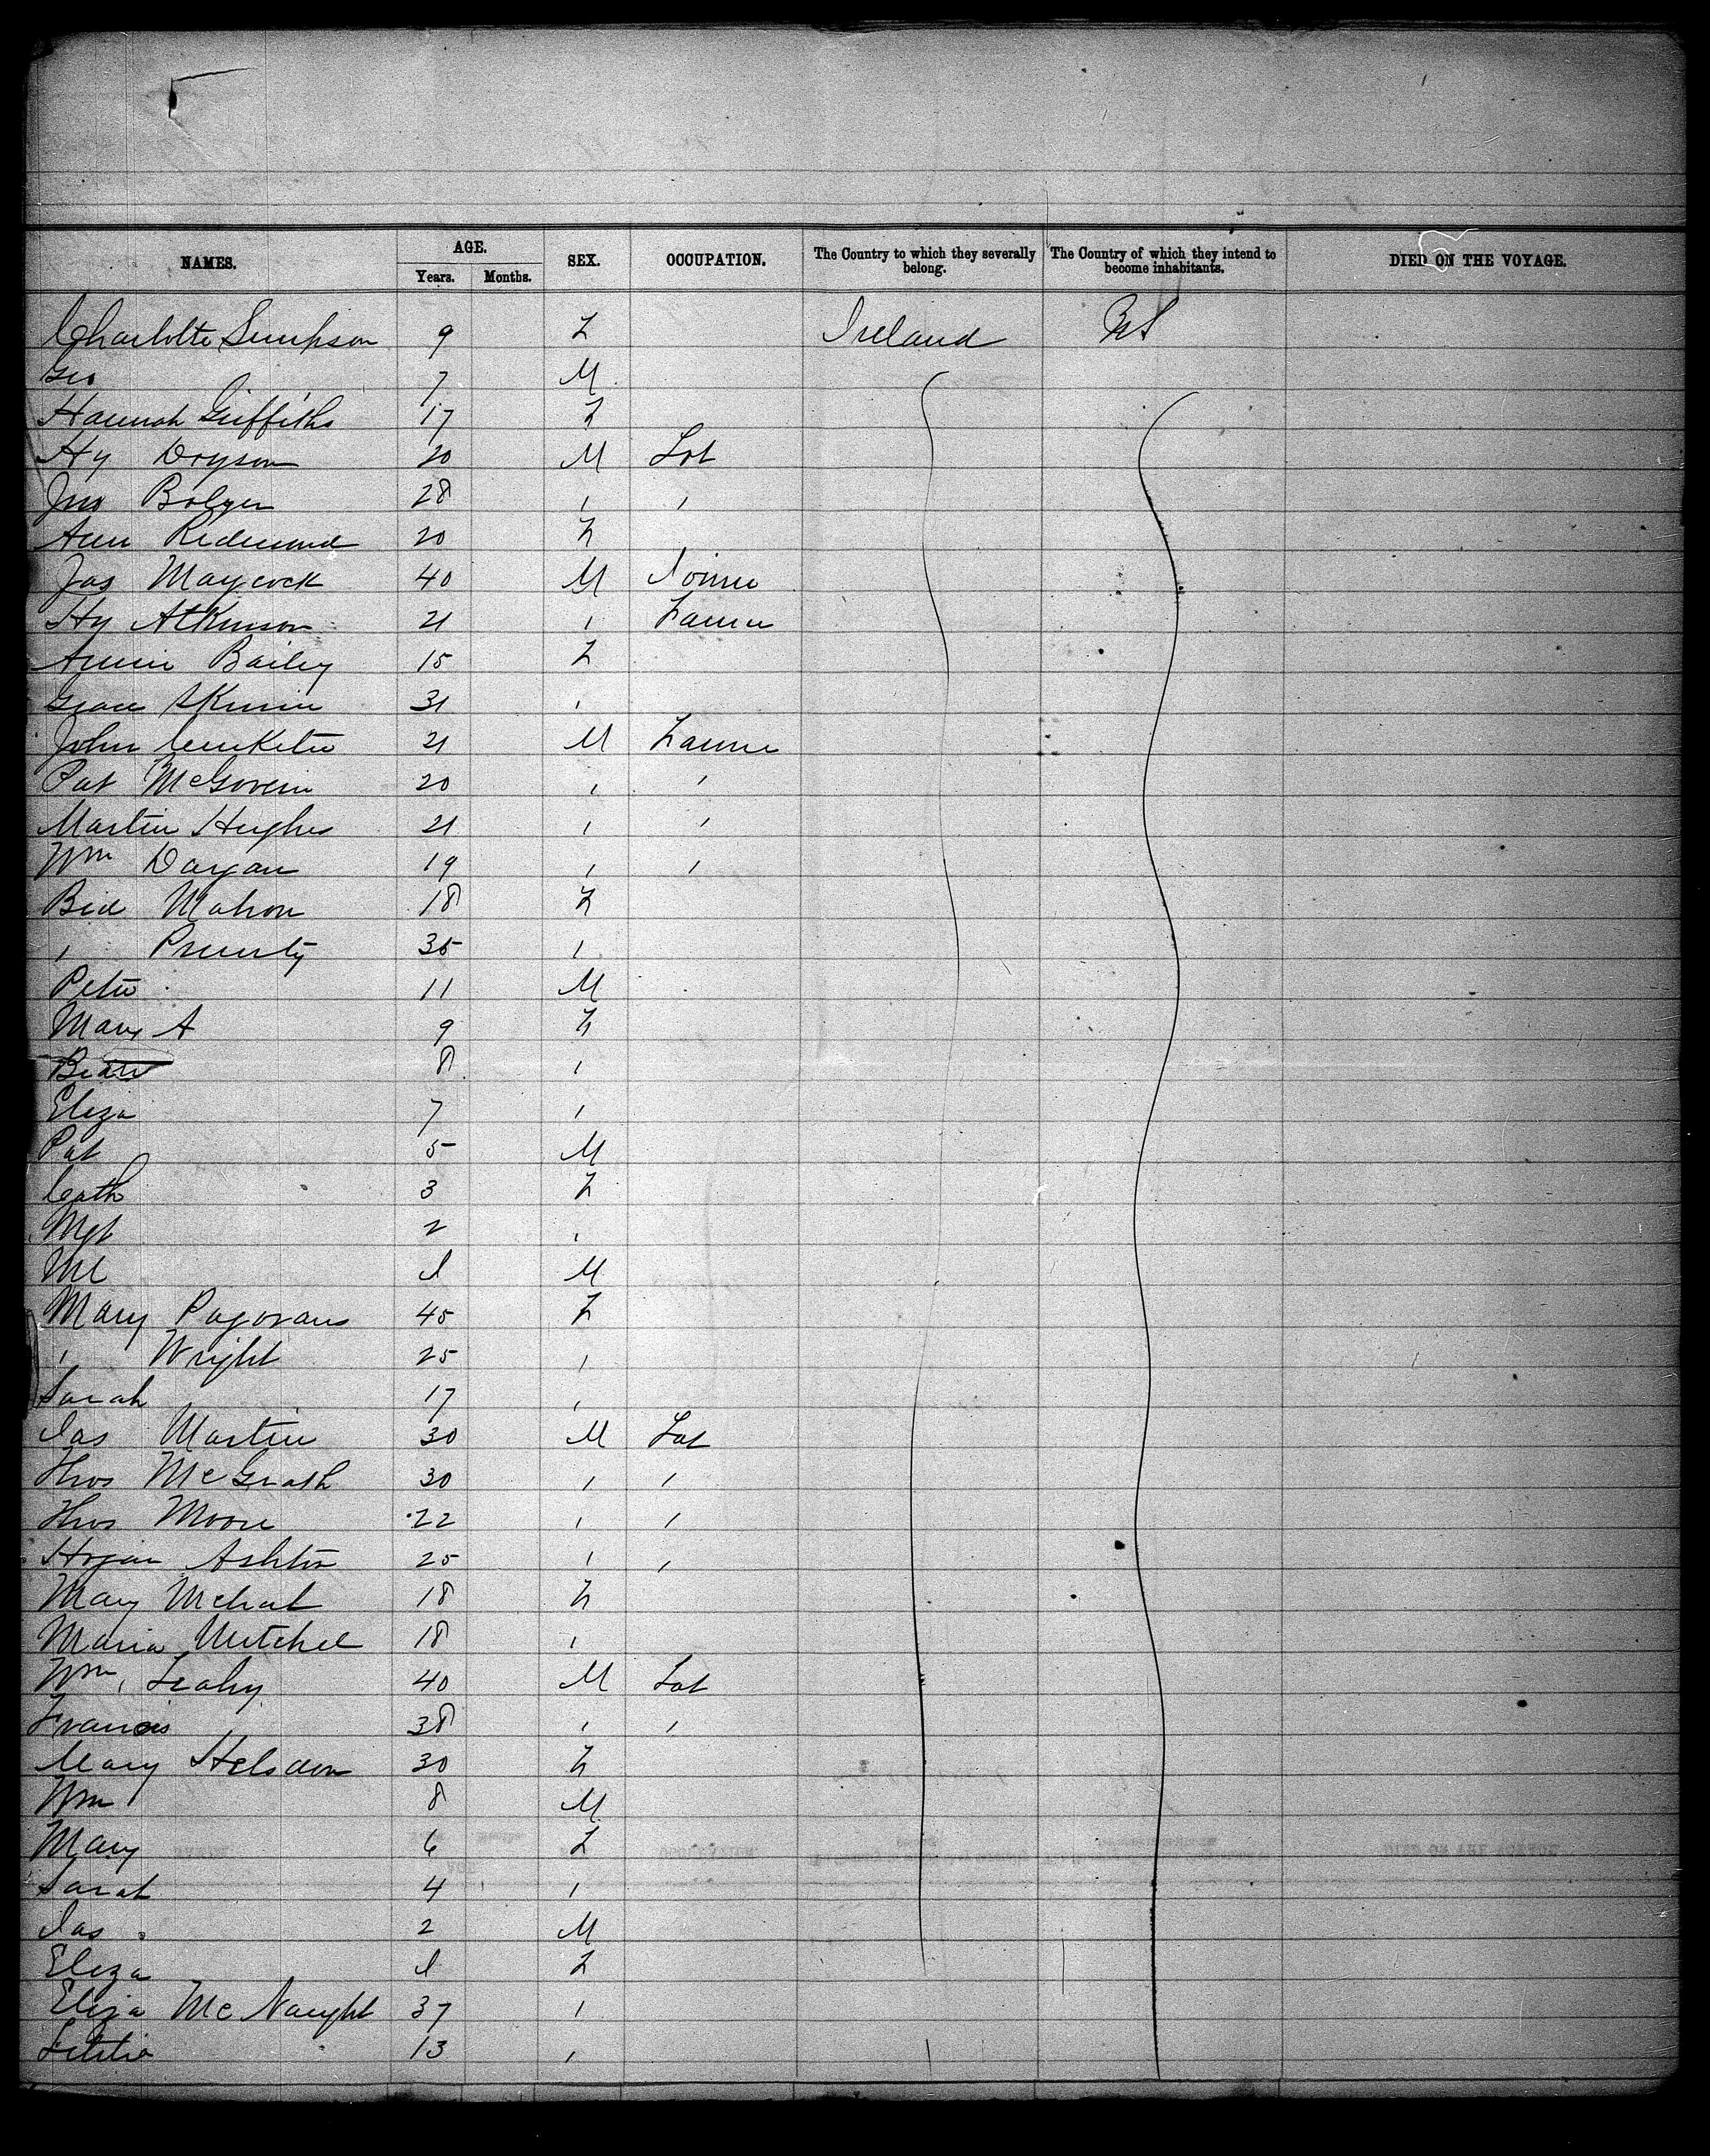 NAMES. AGE. SEX. OCCUPATION. The Country to which they severally belong. The Country of which they intend to become inhabitants. DIED ON THE VOYAGE.
Years. Months.
Charlotte Simpson 9 F Ireland US
Geo 7 M
Hannah Griffiths 17 F
Hy 20 M Lab
Jno Bolger 28 " "
Ann Redmond 20 F
Jas Maycock 40 M
Hy Atkinson 21 " Farmer
Annie Bailey 15 F
Grace 31 "
John 21 M Farmer
Pat McGovern 20 " "
Martin Hughes 21 " "
Wm Dargan 19 " "
Bid Mahon 18 F
" Prunty 35 "
Peter 11 M
Mary A 9 F
8 "
Eliza 7 "
Pat 5 M
Cath 3 F
Mgt 2 "
Ml 1 M
Mary 45 F
" Wright 25 "
Sarah 17 "
Jas Martin 30 M Lab
Thos McGrath 30 " "
Thos Moore 22 " "
Ashton 25 " "
Mary 18 F
Maria Mitchel 18 "
Wm Leahy 40 M Lab
Francis 38 " "
Mary Helsdon 30 F
Wm 8 M
Mary 6 F
Sarah 4 "
Jas 2 M
Eliza 1 F
Eliza McNaught 37 "
Letitia 13 "